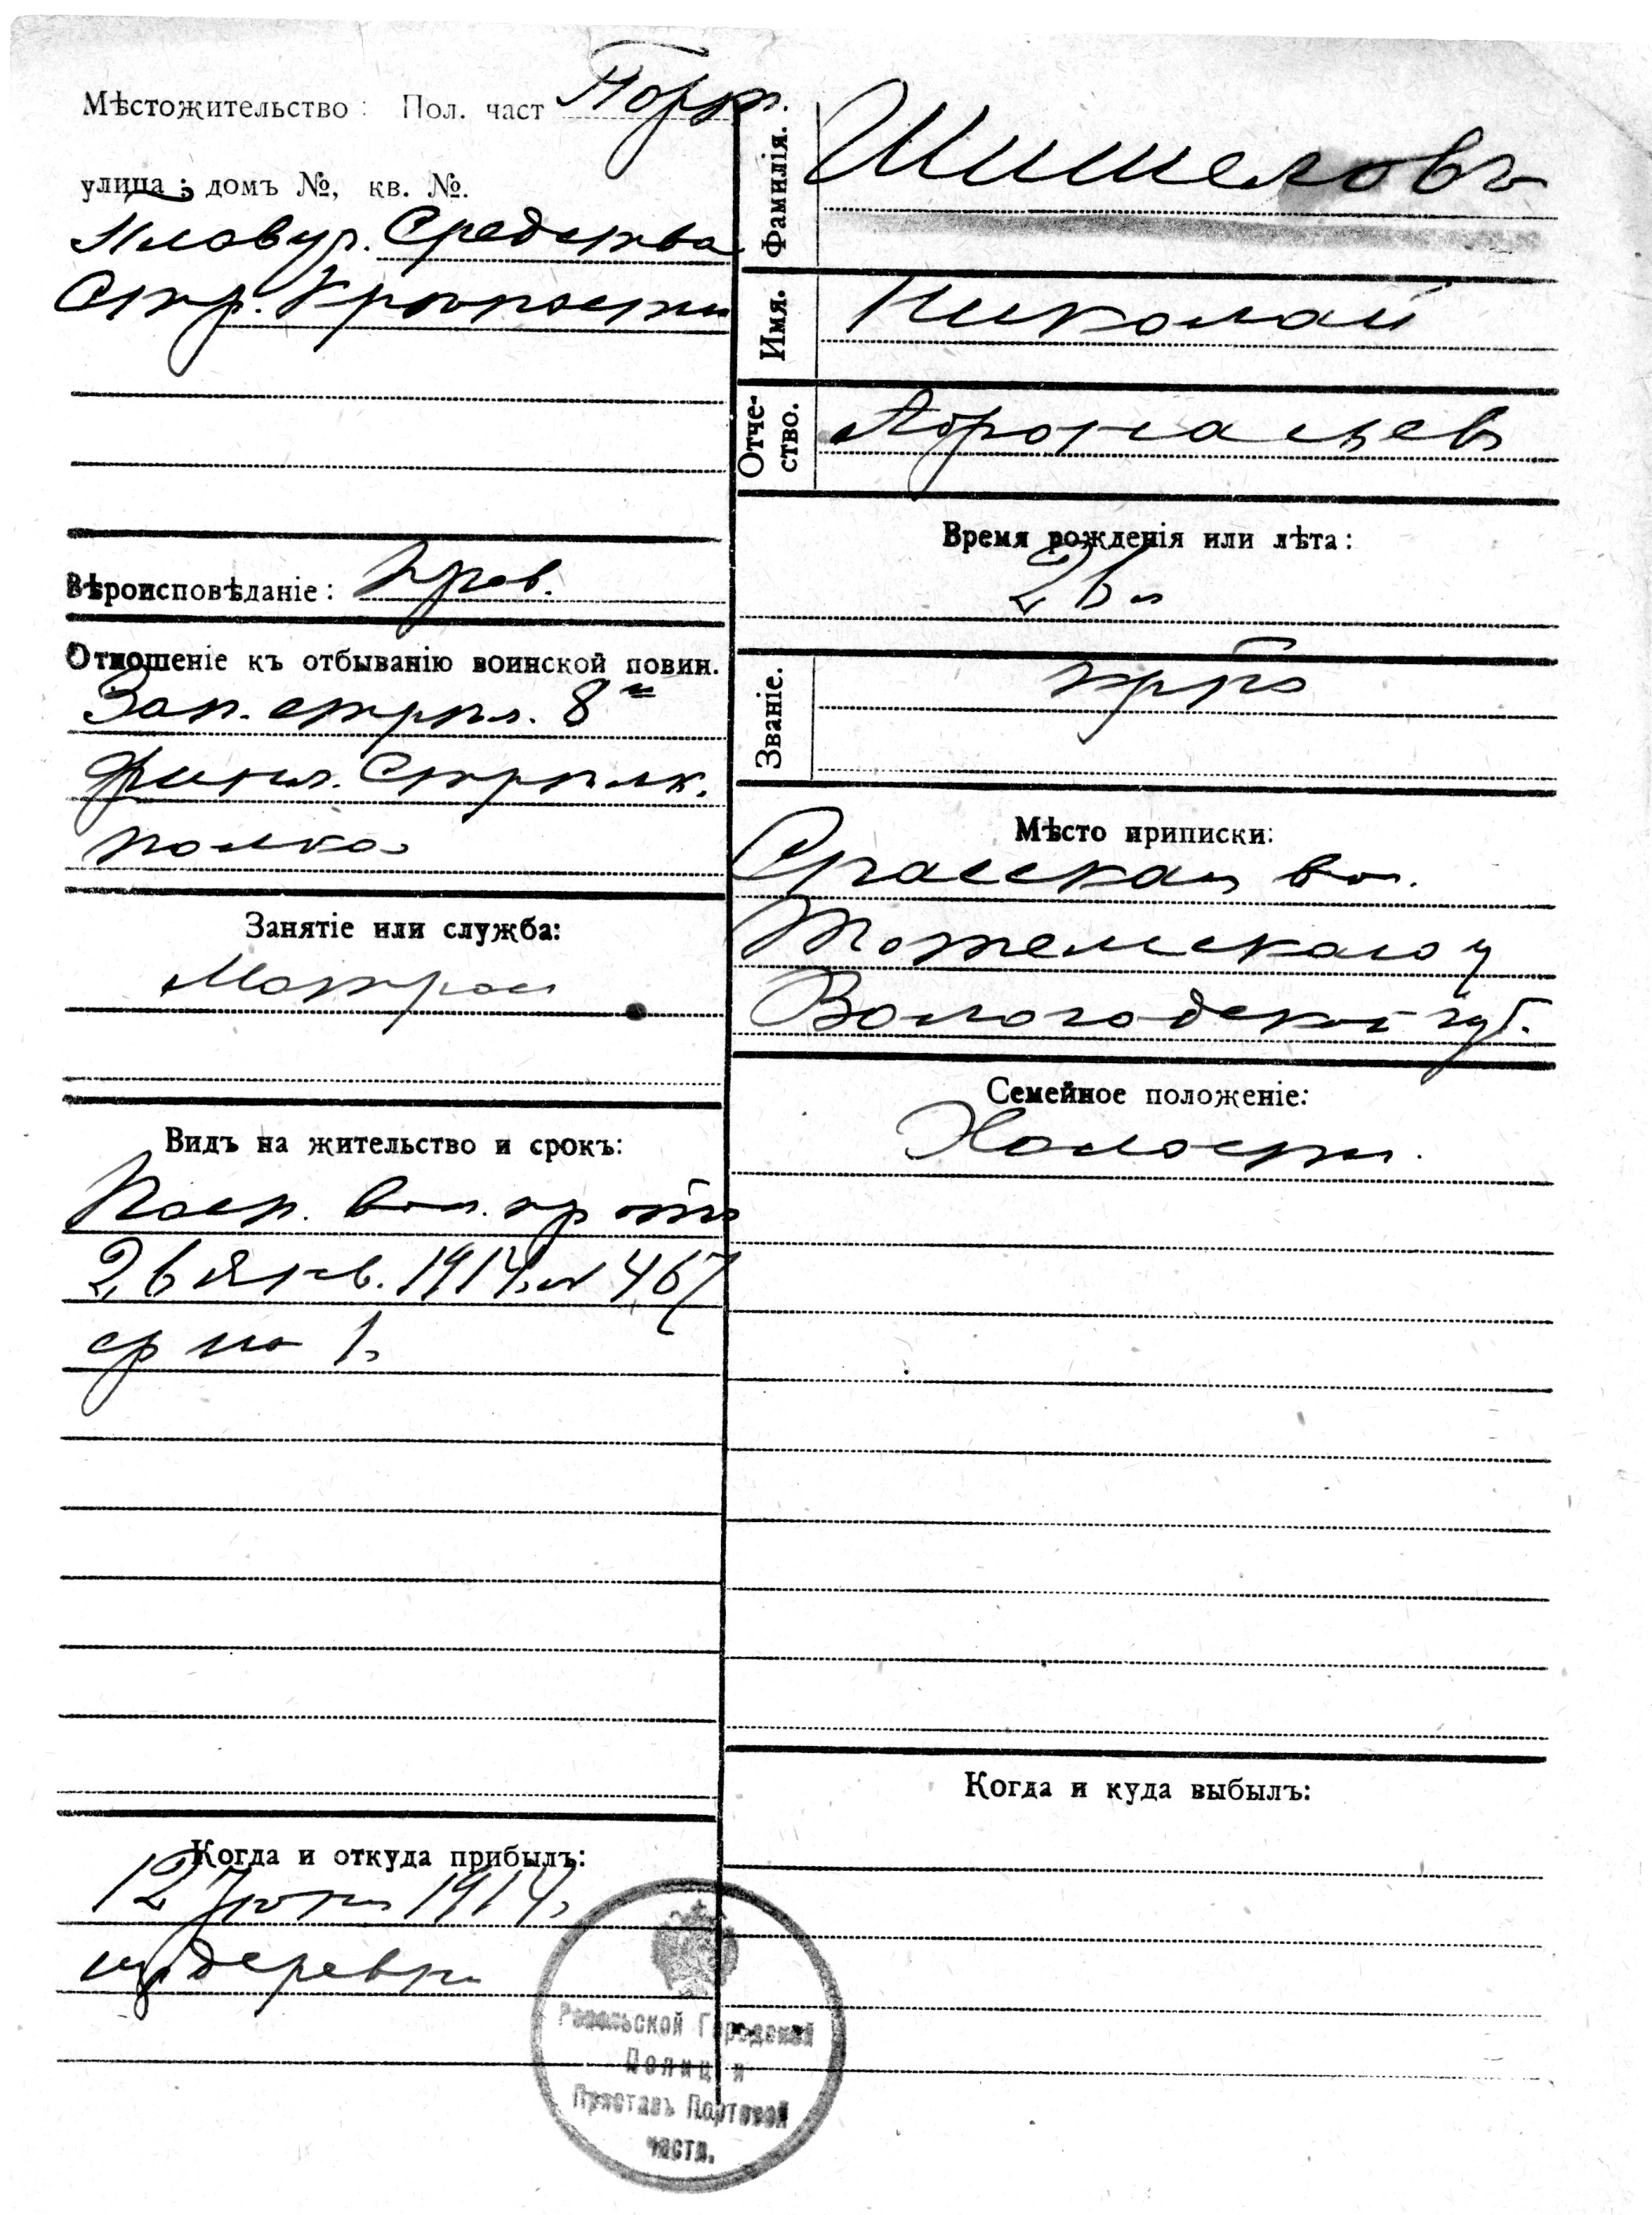 Мѣстожительство: Пол. част Порт.
улица; домъ №, кв. №.
Плавуч. Средства
Стр. Крѣпости
Вѣроисповѣданіе: Прав.
Отношеніе къ отбыванію воинской повин.
Зап. стрѣл. 8го
Финл. Стрѣлк.
полка
Занятіе или служба:
Матрос
Видъ на жительство и срокъ:
Пасп. вол. пр отъ
26 Янв. 1914 г № 467
ср на 1 г
Когда и откуда прибылъ:
12 Іюня 1914 г
из деревни
Фамилія. Шишеловъ
Имя. Николай
Отчество. Афонасьев
Время рожденія или лѣта:
26 л
Званіе. крнъ
Мѣсто приписки:
Спасская вол.
Тотемскаго у
Вологодской губ.
Семейное положеніе:
Холост.
Когда и куда выбылъ:
Ревельской Городской
Полиціи
Приставъ Портовой
части.